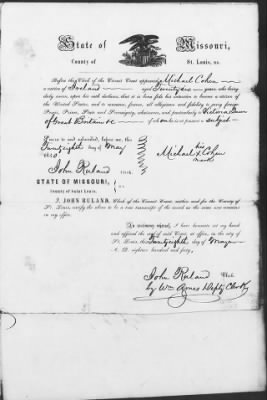 State of Missouri,
County of St. Louis, ss.
Before the Clerk of the Circuit Court appeared Michael Cohen
a native of Ireland aged Twenty six years, who being
duly sworn, upon his oath declares, that it is bona fide his intention to become a citizen of
the United States, and to renounce, forever, all allegiance and fidelity to every foreign
Prince, Power, State and Sovereignty, whatsoever, and particularly to Victoria Queen
of Great Britain &c of whom he is at present a subject
Sworn to and subscribed, before me, this
Twenty eighth day of May
his
Michael X Cohen
mark
John Ruland Clerk.
STATE OF MISSOURI,
County of Saint Louis.
I, JOHN RULAND, Clerk of the Circuit Court, within and for the County of
St. Louis, certify the above to be a true transcript of the record as the same now remains
in my office.
In testimony whereof, I have hereunto set my hand
and affixed the seal of said Court, at office, in the city of
St. Louis, this Twenty eighth day of May
A. D. eighteen hundred and forty
John Ruland Clerk
by Wm